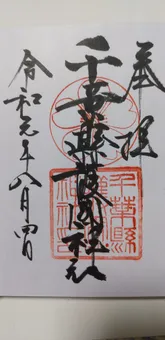 奉拝
千葉縣護國神社
千葉縣護國神社
令和元年八月四日